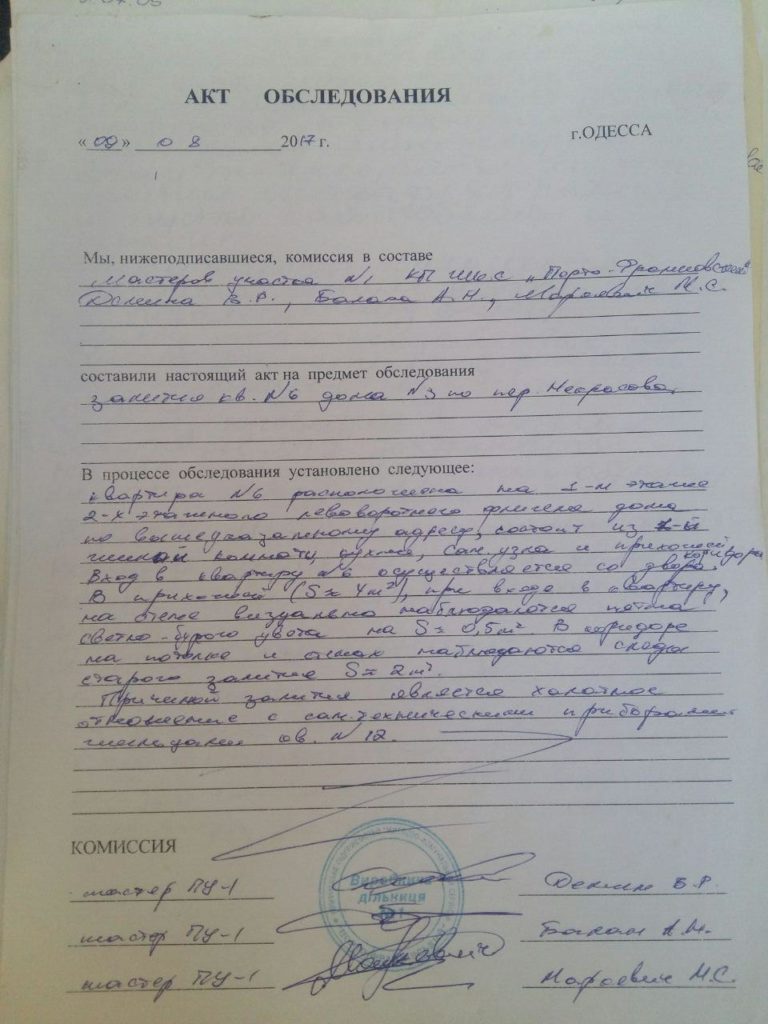 АКТ ОБСЛЕДОВАНИЯ
«09» 08 2017 г.
г.ОДЕССА
Мы, нижеподписавшиеся, комиссия в составе
Мастеров участка №1 КП ЖКС „Порто-Франковский"
В.Р., Бакана А.Н., М.С.
составили настоящий акт на предмет обследования
залития кв. №6 дома №3 по пер. Некрасова.
В процессе обследования установлено следующее:
квартира №6 расположена на 1-м этаже
2-х этажного левоворотного флигеля дома
по вышеуказанному адресу, состоит из 1-й
жилой комнаты, кухни, сан.узла и прихожей, коридора
Вход в квартиру №6 осуществляется со двора.
В прихожей (S≈4м²), при входе в квартиру,
на стене визуально наблюдаются пятна
светло-бурого цвета на S≈0,5м² В коридоре
на потолке и стенах наблюдаются следы
старого залития S≈2м².
Причиной залития является халатное
отношение с сан.техническими приборами
жильцами кв. №12.
КОМИССИЯ
мастер ПУ-1
Виробнича
дільниця
№1
В.Р.
мастер ПУ-1 Бакан А.Н.
мастер ПУ-1 М.С.